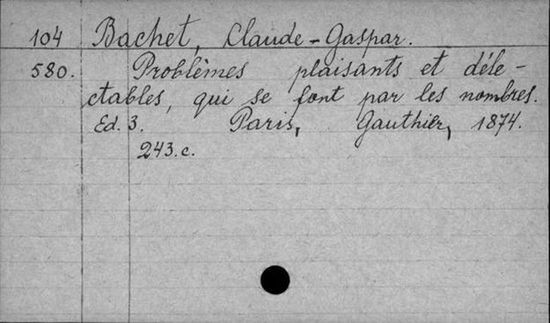 104 Bachet, Claude-Gaspar.
580. Problèmes plaisants et déle-
ctables, qui se font par les nombres.
Ed. 3. Paris, Gauthier, 1874.
243. c.